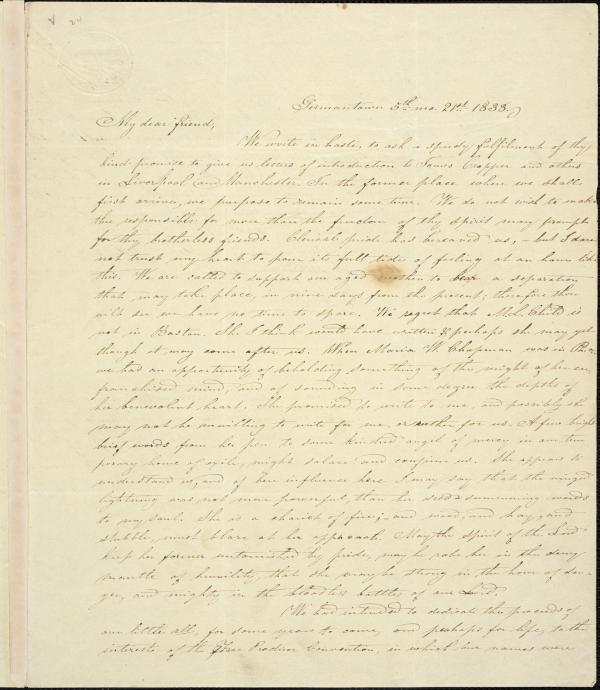 24
Germantown 5th mo. 21st 1838.
My dear friend,
We write in haste, to ask a speedy fulfilment of thy
kind promise to give us letters of introduction to James Cropper and others
in Liverpool and Manchester. In the former place where we shall
first arrive, we purpose to remain some time. We do not wish to make
thee responsible for more than the freedom of thy spirit may prompt
for thy brotherless friends. Clerical pride has bereaved us, – but I dare
not trust my heart to pour its full tide of feeling at an hour like
this. We are called to support our aged mother to bear a separation
that may take place, in nine days from the present; therefore thou
wilt see we have no time to spare. We regret that M. L. Child is
not in Boston. She I think would have written & perhaps she may yet
though it may come after us. When Maria W. Chapman was in
we had an opportunity of beholding something of the might of her en-
franchised mind, and of sounding in some degree the depths of
her benevolent heart. She promised to write to me, and possibly she
may not be unwilling to write for me, or rather for us. A few bright
brief words from her pen to some kindred angel of mercy in our tem
porary home of exile, might solace and confirm us. She appears to
understand us, and of her influence here I may say that the winged
lightning was not more powerful, than her summoning words
to my soul. She is a chariot of fire; – and wood, and hay, and
stubble, must blaze at her approach. May the spirit of the Lord
keep her forever untarnished by pride, may he robe her in the
mantle of humility, that she may be strong in the hour of dan-
ger, and mighty in the bloodless battles of our Lord.
We had intended to dedicate the proceeds of
our little all, for some years to come, and perhaps for life, to the
interests of the Free Produce Convention, in which our names were